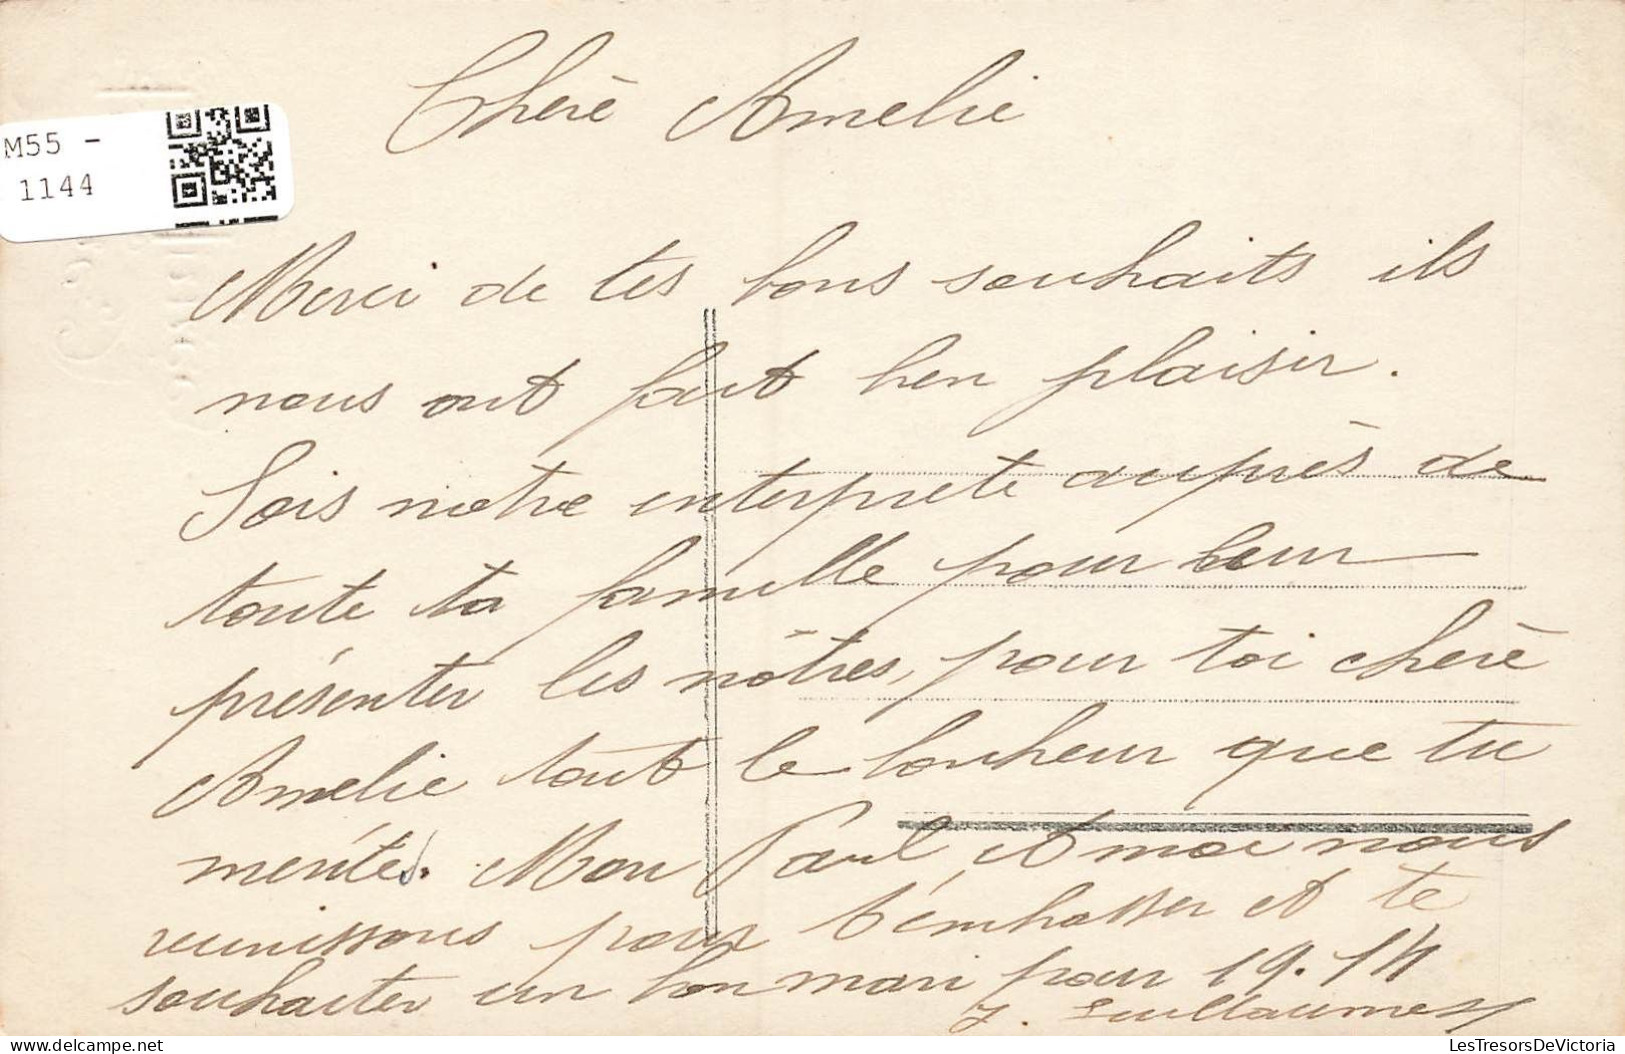 Cherè Amelie
M55 -
1144
Merci de tes bons souhaits ils
nous ont fait ben plaisir.
Sois notre interprete auprès de
toute ta famille pour leur
présenter les nôtres, pour toi cherè
Amelie tout le bonheur que tu
merites. Mon Paul et moi nous
reunissons pour t'embrasser et te
souhaiter un bon mari pour 19.14
LesTresorsDeVictoria